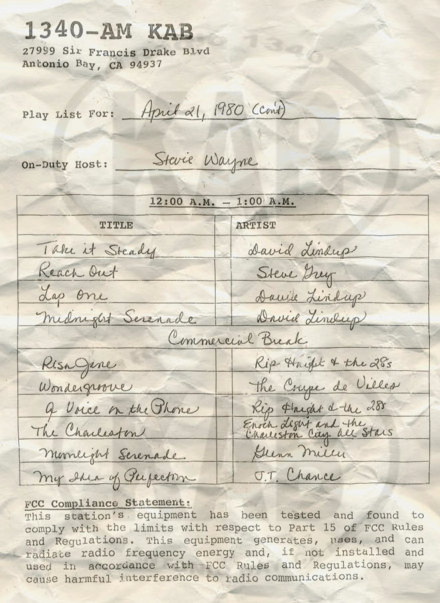 1340-AM KAB
27999 Sir Francis Drake Blvd
Antonio Bay, CA 94937
Play List For: April 21, 1980 (cont)
On-Duty Host: Stevie Wayne
12:00 A.M. — 1:00 A.M.
TITLE ARTIST
Take it Steady David Lindup
Reach Out Steve Grey
Lap One David Lindup
Midnight Serenade David Lindup
Commercial Break
Risa Jane Rip Haight & the 28s
Wondergroove The Coupe de Villes
A Voice on the Phone Rip Haight & the 28s
The Charleston Enoch Light and the Charleston City All Stars
Moonlight Serenade Glenn Miller
My Idea of Perfection J.T. Chance
FCC Compliance Statement:
This station's equipment has been tested and found to
comply with the limits with respect to Part 15 of FCC Rules
and Regulations. This equipment generates, uses, and can
radiate radio frequency energy and, if not installed and
used in accordance with FCC Rules and Regulations, may
cause harmful interference to radio communications.